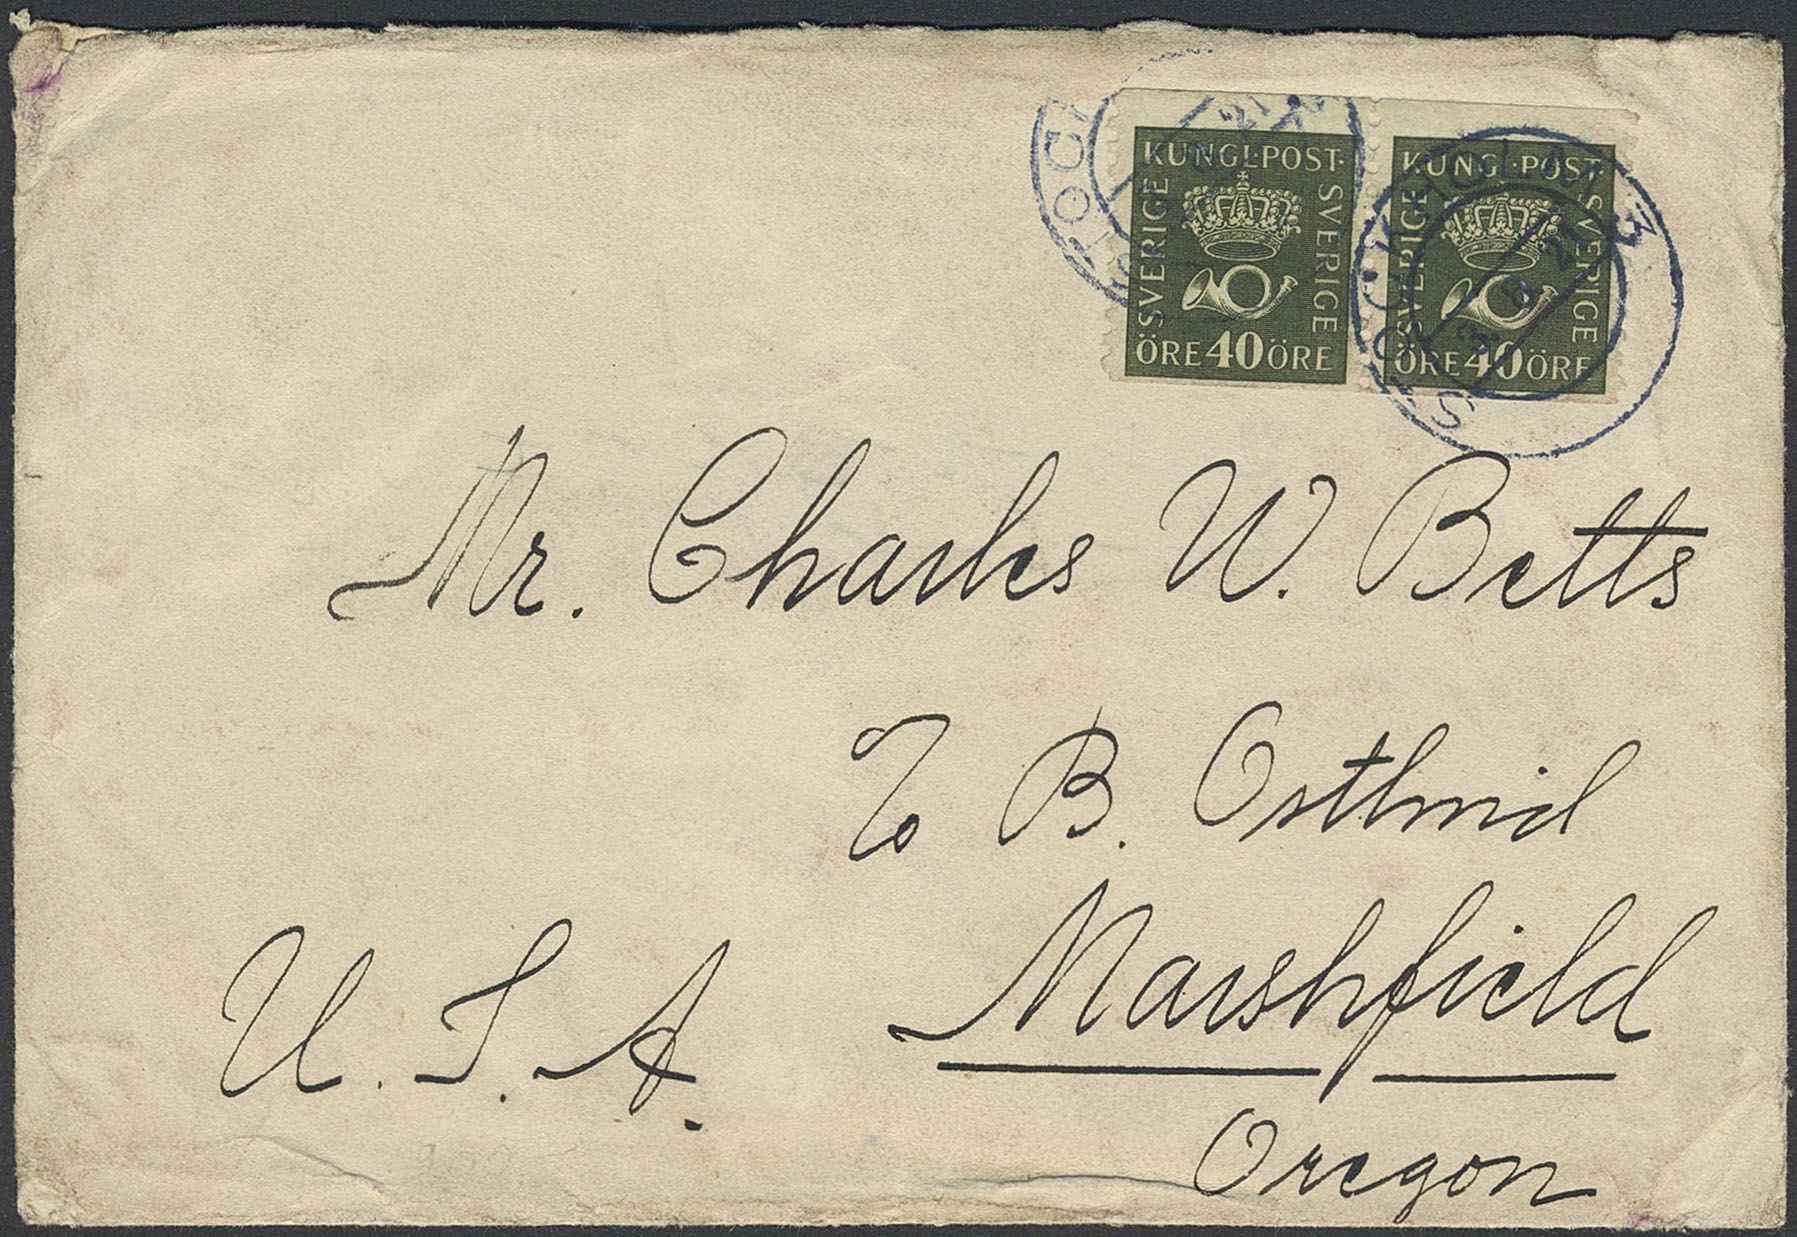 KUNGL·POST
SVERIGE
SVERIGE
ÖRE 40 ÖRE
KUNGL·POST
SVERIGE
SVERIGE
ÖRE 40 ÖRE
STOCKHOLM 3
Mr. Charles W. Betts
B. Ostlind
Marshfield
U.S.A.
Oregon